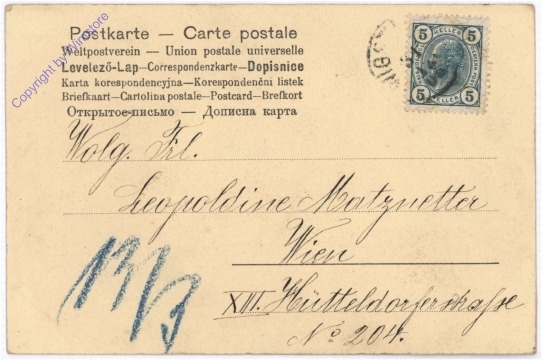 Copyright by Winstore
Postkarte — Carte postale
Weltpostverein — Union postale universelle
Levelező-Lap—Correspondenzkarte—Dopisnice
Karta korespondencyjna—Korespondenční listek
Briefkaart—Cartolina postale—Postcard—Brefkort
Открытое письмо — Дописна карта
5 HELLER 5
5 HELLER 5
Wolg. Frl.
Leopoldine Matznetter
Wien
XIII. Hütteldorferstraße
No 204.
13/3